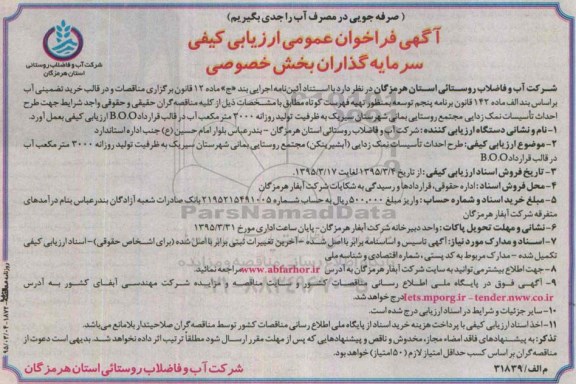 ( صرفه جویی در مصرف آب را جدی بگیریم )
آگهی فراخوان عمومی ارزیابی کیفی
سرمایه گذاران بخش خصوصی
شرکت آب و فاضلاب روستائی
استان هرمزگان
شرکت آب و فاضلاب روستائی استان هرمزگان در نظر دارد با استناد آئین‌نامه اجرایی بند «ج» ماده ۱۲ قانون برگزاری مناقصات و در قالب خرید تضمینی آب
براساس بند الف ماده ۱۴۲ قانون برنامه پنجم توسعه بمنظور تهیه فهرست کوتاه مطابق با مشخصات ذیل از کلیه مناقصه‌گران حقیقی و حقوقی واجد شرایط جهت طرح
احداث تأسیسات نمک زدایی مجتمع روستایی بمانی شهرستان سیریک به ظرفیت تولید روزانه ۳۰۰۰ متر مکعب آب در قالب قرارداد B.O.O ارزیابی کیفی بعمل آورد.
۱- نام و نشانی دستگاه ارزیابی کننده: شرکت آب و فاضلاب روستائی استان هرمزگان - بندرعباس بلوار امام حسین (ع) جنب اداره استاندارد
۲- موضوع ارزیابی کیفی: طرح احداث تأسیسات نمک زدایی (آبشیرینکن) مجتمع روستایی بمانی شهرستان سیریک به ظرفیت تولید روزانه ۳۰۰۰ متر مکعب آب
در قالب قرارداد B.O.O
۳- تاریخ فروش اسناد ارزیابی کیفی: از تاریخ ۱۳۹۵/۳/۴ لغایت ۱۳۹۵/۳/۱۷
۴- محل فروش اسناد: اداره حقوقی، قراردادها و رسیدگی به شکایات شرکت آبفار هرمزگان
۵- مبلغ خرید اسناد و شماره حساب: واریز مبلغ ۵۰۰.۰۰۰ ریال به حساب شماره ۲۱۹۵۲۱۵۴۹۱۰۰۵ بانک صادرات شعبه آزادگان بندرعباس بنام درآمدهای
متفرقه شرکت آبفار هرمزگان
۶- نشانی و مهلت تحویل پاکات: واحد دبیرخانه شرکت آبفار هرمزگان - پایان ساعت اداری مورخ ۱۳۹۵/۳/۳۱
۷- اسناد و مدارک مورد نیاز: آگهی تاسیس و اساسنامه برابر با اصل شده - آخرین تغییرات ثبتی برابر با اصل شده (برای اشخاص حقوقی) - اسناد ارزیابی کیفی
تکمیل شده - مدارک مربوط به کد پستی، شماره اقتصادی و شناسه ملی
۸- جهت اطلاع بیشتر می‌توانید به سایت شرکت آبفار هرمزگان به آدرس www.abfarhor.ir مراجعه نمائید.
۹- آگهی فوق در پایگاه ملی اطلاع رسانی مناقصات کشور و سایت مناقصه و مزایده شرکت مهندسی آبفای کشور به آدرس
iets.mporg.ir - tender.nww.co.ir درج خواهد شد.
۱۰- سایر جزئیات و شرایط در اسناد ارزیابی درج شده است.
۱۱- اخذ اسناد ارزیابی کیفی با پرداخت هزینه خرید اسناد از پایگاه ملی اطلاع رسانی مناقصات کشور توسط مناقصه گران صلاحیتدار بلامانع می‌باشد.
تذکر: به پیشنهادهای فاقد امضاء مجاز، مخدوش و ناقص و پیشنهادهایی که پس از مهلت مقرر ارسال شود مطلقاً ترتیب اثر داده نخواهد شد. بدیهی است دعوت از
مناقصه گران بر اساس کسب حداقل امتیاز لازم (۵۰ امتیاز) خواهد بود.
شرکت آب و فاضلاب روستائی استان هرمزگان
م الف/ ۳۱۸۳۹
ParsNamadData